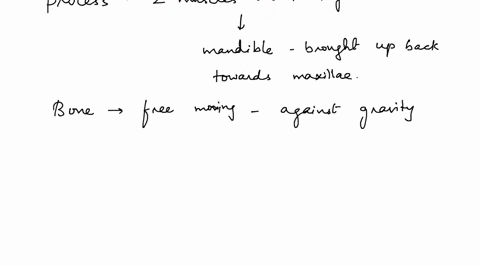 process - 2 muscles
↓
mandible - brought up back
towards maxillae.
Bone → free moving - against gravity